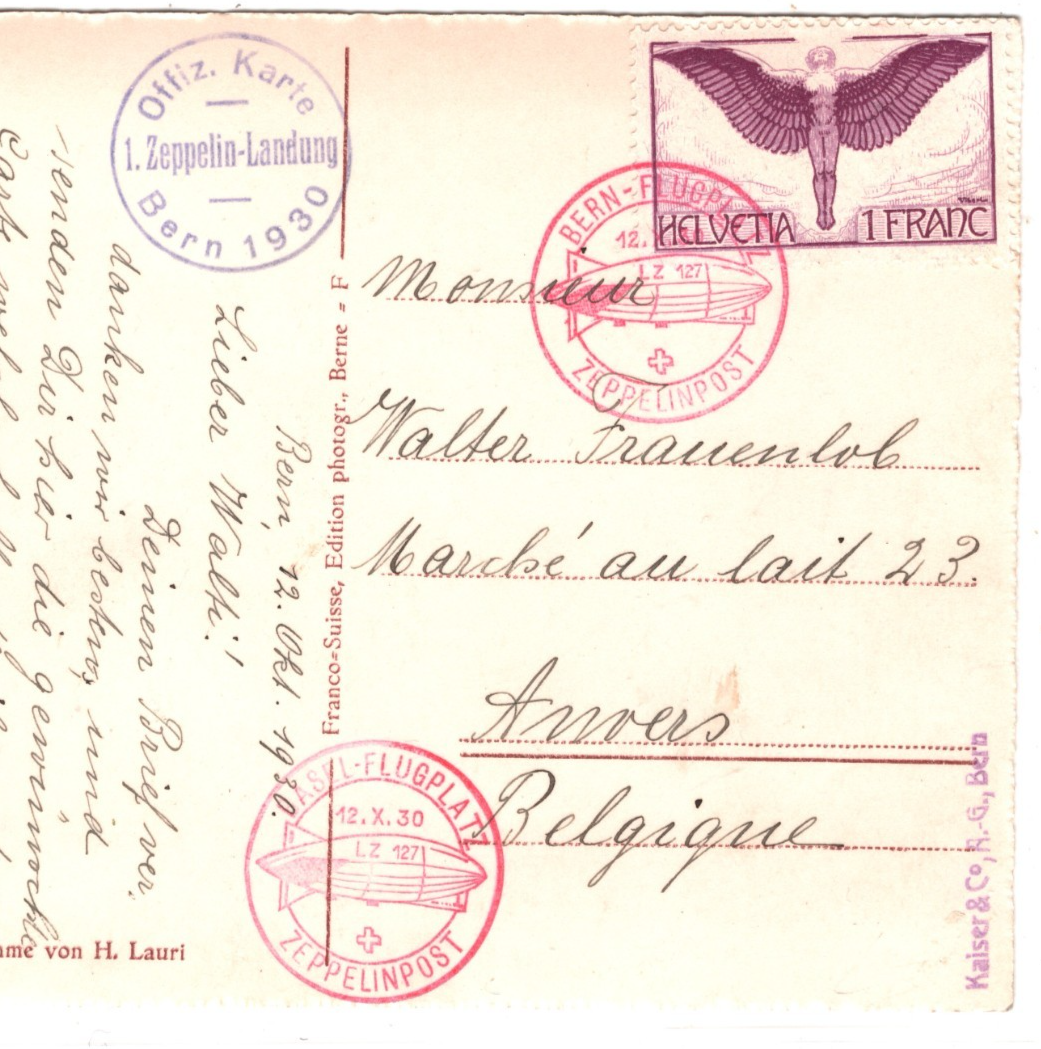 Offiz. Karte
1. Zeppelin-Landung
Bern 1930
HELVETIA 1 FRANC
BERN-FLUGPL
12.
LZ 127
ZEPPELINPOST
Monsieur
Walter Frauenlob
Marché au lait 23.
Anvers
Belgique
Bern, 12. Okt. 1930.
Lieber Walti!
Deinen Brief ver
danken wir bestens, und
senden Dir hier die gewünschte
Carte
Franco=Suisse, Edition photogr., Berne = F
ASEL-FLUGPLATZ
12.X.30
LZ 127
ZEPPELINPOST
hme von H. Lauri
Kaiser & Co, A.-G., Bern